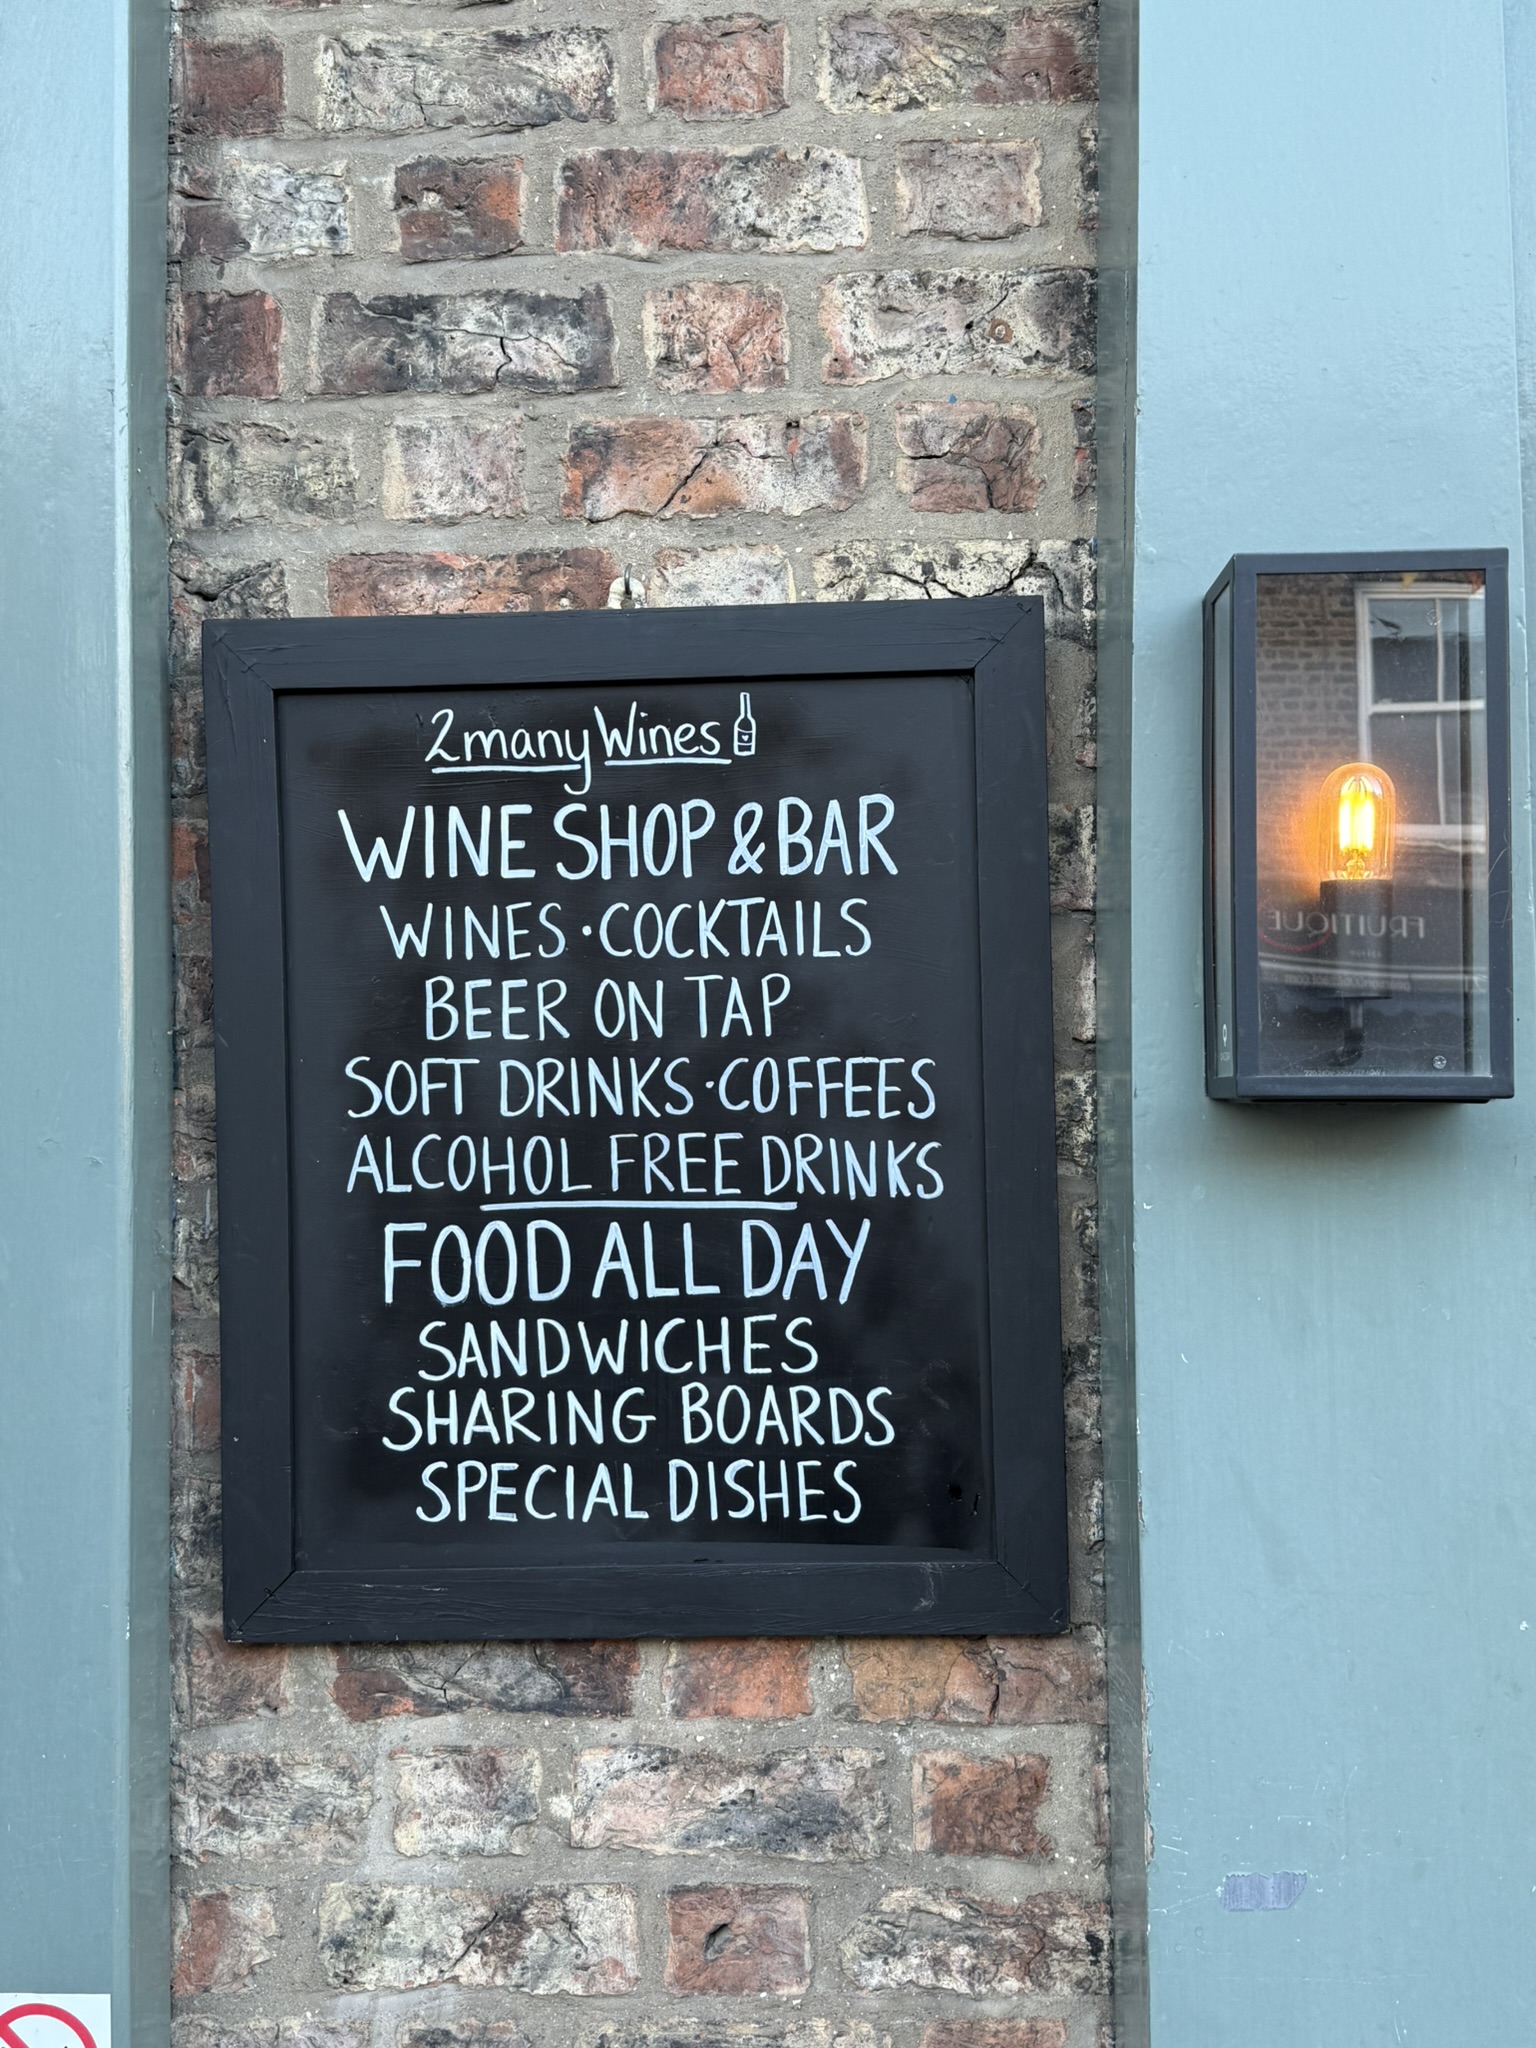 2many Wines
WINE SHOP & BAR
WINES · COCKTAILS
BEER ON TAP
SOFT DRINKS · COFFEES
ALCOHOL FREE DRINKS
FOOD ALL DAY
SANDWICHES
SHARING BOARDS
SPECIAL DISHES
FRUITIQUE